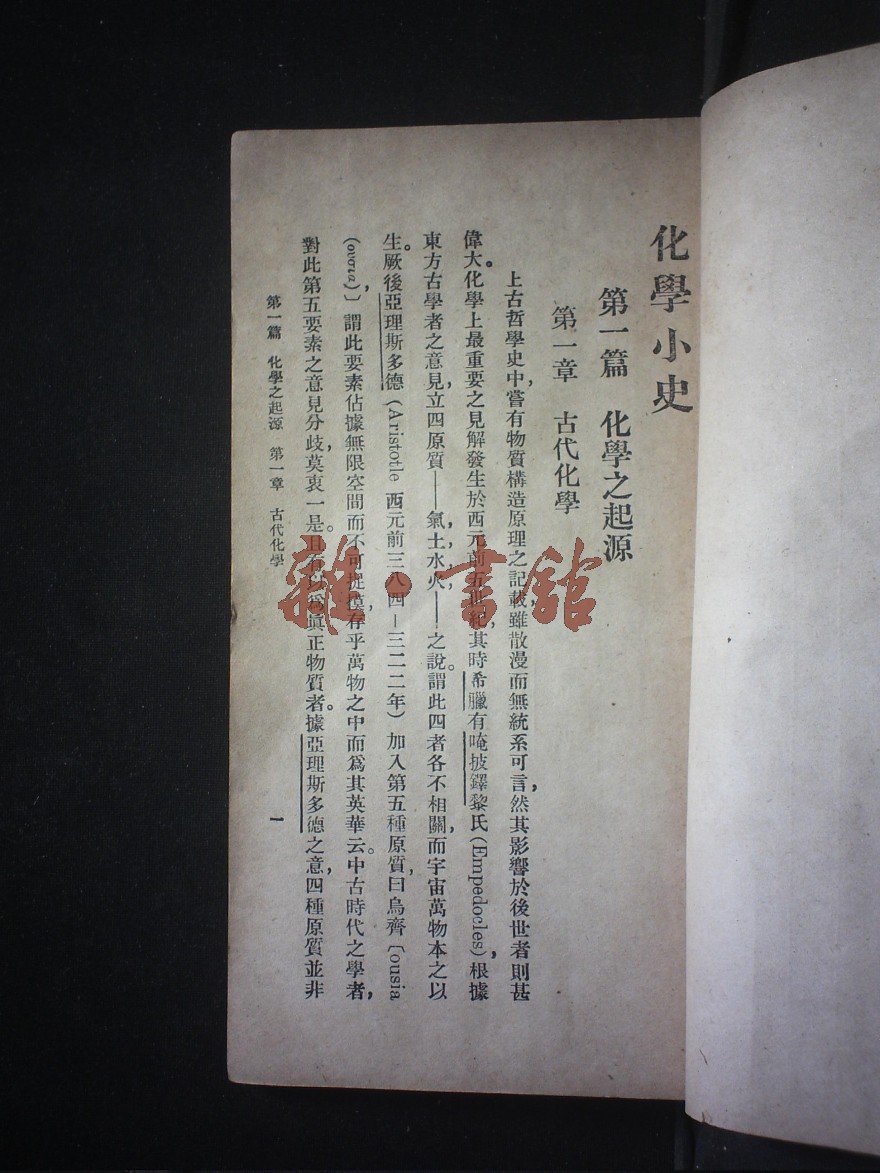 化學小史
第一篇　化學之起源
第一章　古代化學
上古哲學史中，嘗有物質構造原理之記載，雖散漫而無統系可言，然其影響於後世者則甚
偉大。化學上最重要之見解發生於西元前五世紀，其時希臘有唵披鐸黎氏(Empedocles)，根據
東方古學者之意見，立四原質——氣，土，水，火——之說。謂此四者各不相關，而宇宙萬物本之以
生。厥後亞理斯多德(Aristotle 西元前三八四－三二二年)加入第五種原質，曰烏齊〔ousia
(ουσια)，〕謂此要素佔據無限空間而不可捉摸，存乎萬物之中而爲其英華云。中古時代之學者，
對此第五要素之意見分歧，莫衷一是。且有以爲眞正物質者。據亞理斯多德之意，四種原質並非
第一篇　化學之起源　第一章　古代化學
一
雜·書舘